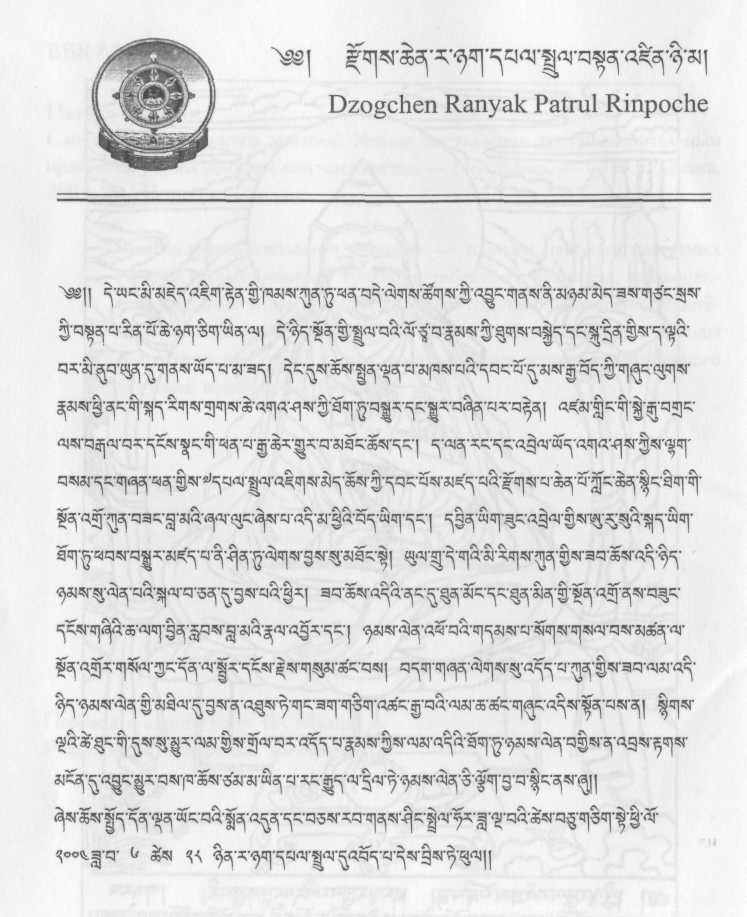 ༄༅། རྫོགས་ཆེན་ར་ཉག་དཔལ་སྤྲུལ་བསྟན་འཛིན་ཉི་མ།
Dzogchen Ranyak Patrul Rinpoche
༄༅།། དེ་ཡང་མི་མཇེད་འཇིག་རྟེན་གྱི་ཁམས་ཀུན་ཏུ་ཕན་བདེ་ལེགས་ཚོགས་ཀྱི་འབྱུང་གནས་ནི་མཉམ་མེད་ཟས་གཙང་སྲས་
ཀྱི་བསྟན་པ་རིན་པོ་ཆེ་ཉག་ཅིག་ཡིན་ལ། དེ་ཉིད་སྔོན་གྱི་སྤྲུལ་བའི་ལོ་ཙྪ་བ་རྣམས་ཀྱི་ཐུགས་བསྐྱེད་དང་སྐུ་དྲིན་གྱིས་ད་ལྟའི་
བར་མི་ནུབ་ཡུན་དུ་གནས་ཡོད་པ་མ་ཟད། དེང་དུས་ཆོས་སྤྱན་ལྡན་པ་མཁས་པའི་དབང་པོ་དུ་མས་རྒྱ་བོད་ཀྱི་གཞུང་ལུགས་
རྣམས་ཕྱི་ནང་གི་སྐད་རིགས་གྲགས་ཆེ་འགའ་ཤས་ཀྱི་ཐོག་ཏུ་བསྒྱུར་དང་སྒྱུར་བཞིན་པར་བརྟེན། འཛམ་གླིང་གི་སྐྱེ་རྒུ་བགྲང་
ལས་བརྒལ་བར་དངོས་སྣང་གི་ཕན་པ་རྒྱ་ཆེར་གྱུར་བ་མཐོང་ཆོས་དང་། ད་ལན་རང་དང་འབྲེལ་ཡོད་འགའ་ཤས་ཀྱིས་ལྷག་
བསམ་དང་གཞན་ཕན་གྱིས་༧དཔལ་སྤྲུལ་འཇིགས་མེད་ཆོས་ཀྱི་དབང་པོས་མཛད་པའི་རྫོགས་པ་ཆེན་པོ་ཀློང་ཆེན་སྙིང་ཐིག་གི་
སྔོན་འགྲོ་ཀུན་བཟང་བླ་མའི་ཞལ་ལུང་ཞེས་པ་འདི་མ་ཕྱིའི་བོད་ཡིག་དང་། དབྱིན་ཡིག་ཟུང་འབྲེལ་གྱིས་ཨུ་རུ་སུའི་སྐད་ཡིག་
ཐོག་ཏུ་ཕབས་བསྒྱུར་མཛད་པ་ནི་ཤིན་ཏུ་ལེགས་བྱས་སུ་མཐོང་སྟེ། ཡུལ་གྲུ་དེ་གའི་མི་རིགས་ཀུན་གྱིས་ཟབ་ཆོས་འདི་ཉིད་
ཉམས་སུ་ལེན་པའི་སྐལ་བ་ཅན་དུ་བྱས་པའི་ཕྱིར། ཟབ་ཆོས་འདིའི་ནང་དུ་ཐུན་མོང་དང་ཐུན་མིན་གྱི་སྔོན་འགྲོ་ནས་བཟུང་
དངོས་གཞིའི་ཆ་ལག་བྱིན་རླབས་བླ་མའི་རྣལ་འབྱོར་དང་། ཉམས་ལེན་འཕོ་བའི་གདམས་པ་སོགས་གསལ་བས་མཚན་ལ་
སྔོན་འགྲོར་གསོལ་ཀྱང་དོན་ལ་སྦྱོར་དངོས་རྗེས་གསུམ་ཚང་བས། བདག་གཞན་ལེགས་སུ་འདོད་པ་ཀུན་གྱིས་ཟབ་ལམ་འདི་
ཉིད་ཉམས་ལེན་གྱི་མཐིལ་དུ་བྱས་ན་འཐུས་ཏེ་གང་ཟག་གཅིག་འཚང་རྒྱ་བའི་ལམ་ཆ་ཚང་གཞུང་འདིས་སྟོན་པས་ན། སྙིགས་
ལྔའི་ཚེ་ཐུང་གི་དུས་སུ་མྱུར་ལམ་གྱིས་གྲོལ་བར་འདོད་པ་རྣམས་ཀྱིས་ལམ་འདིའི་ཐོག་ཏུ་ཉམས་ལེན་བགྱིས་ན་འབྲས་རྟགས་
མངོན་དུ་འབྱུང་མྱུར་བས་ཁ་ཆོས་ཙམ་མ་ཡིན་པ་རང་རྒྱུད་ལ་དྲིལ་ཏེ་ཉམས་ལེན་ཅི་ལྕོག་བྱ་བ་སྙིང་ནས་ཞུ།།
ཞེས་ཆོས་སྤྱོད་དོན་ལྡན་ཡོང་བའི་སྨོན་འདུན་དང་བཅས་རབ་གནས་ཤིང་སྤྲེལ་ཧོར་ཟླ་ལྔ་བའི་ཚེས་བཅུ་གཅིག་སྟེ་ཕྱི་ལོ་
༢༠༠༤ཟླ་བ་ ༦ ཚེས ༢༨ ཉིན་ར་ཉག་དཔལ་སྤྲུལ་དུ་འབོད་པ་དེས་བྲིས་ཏེ་ཕུལ།།